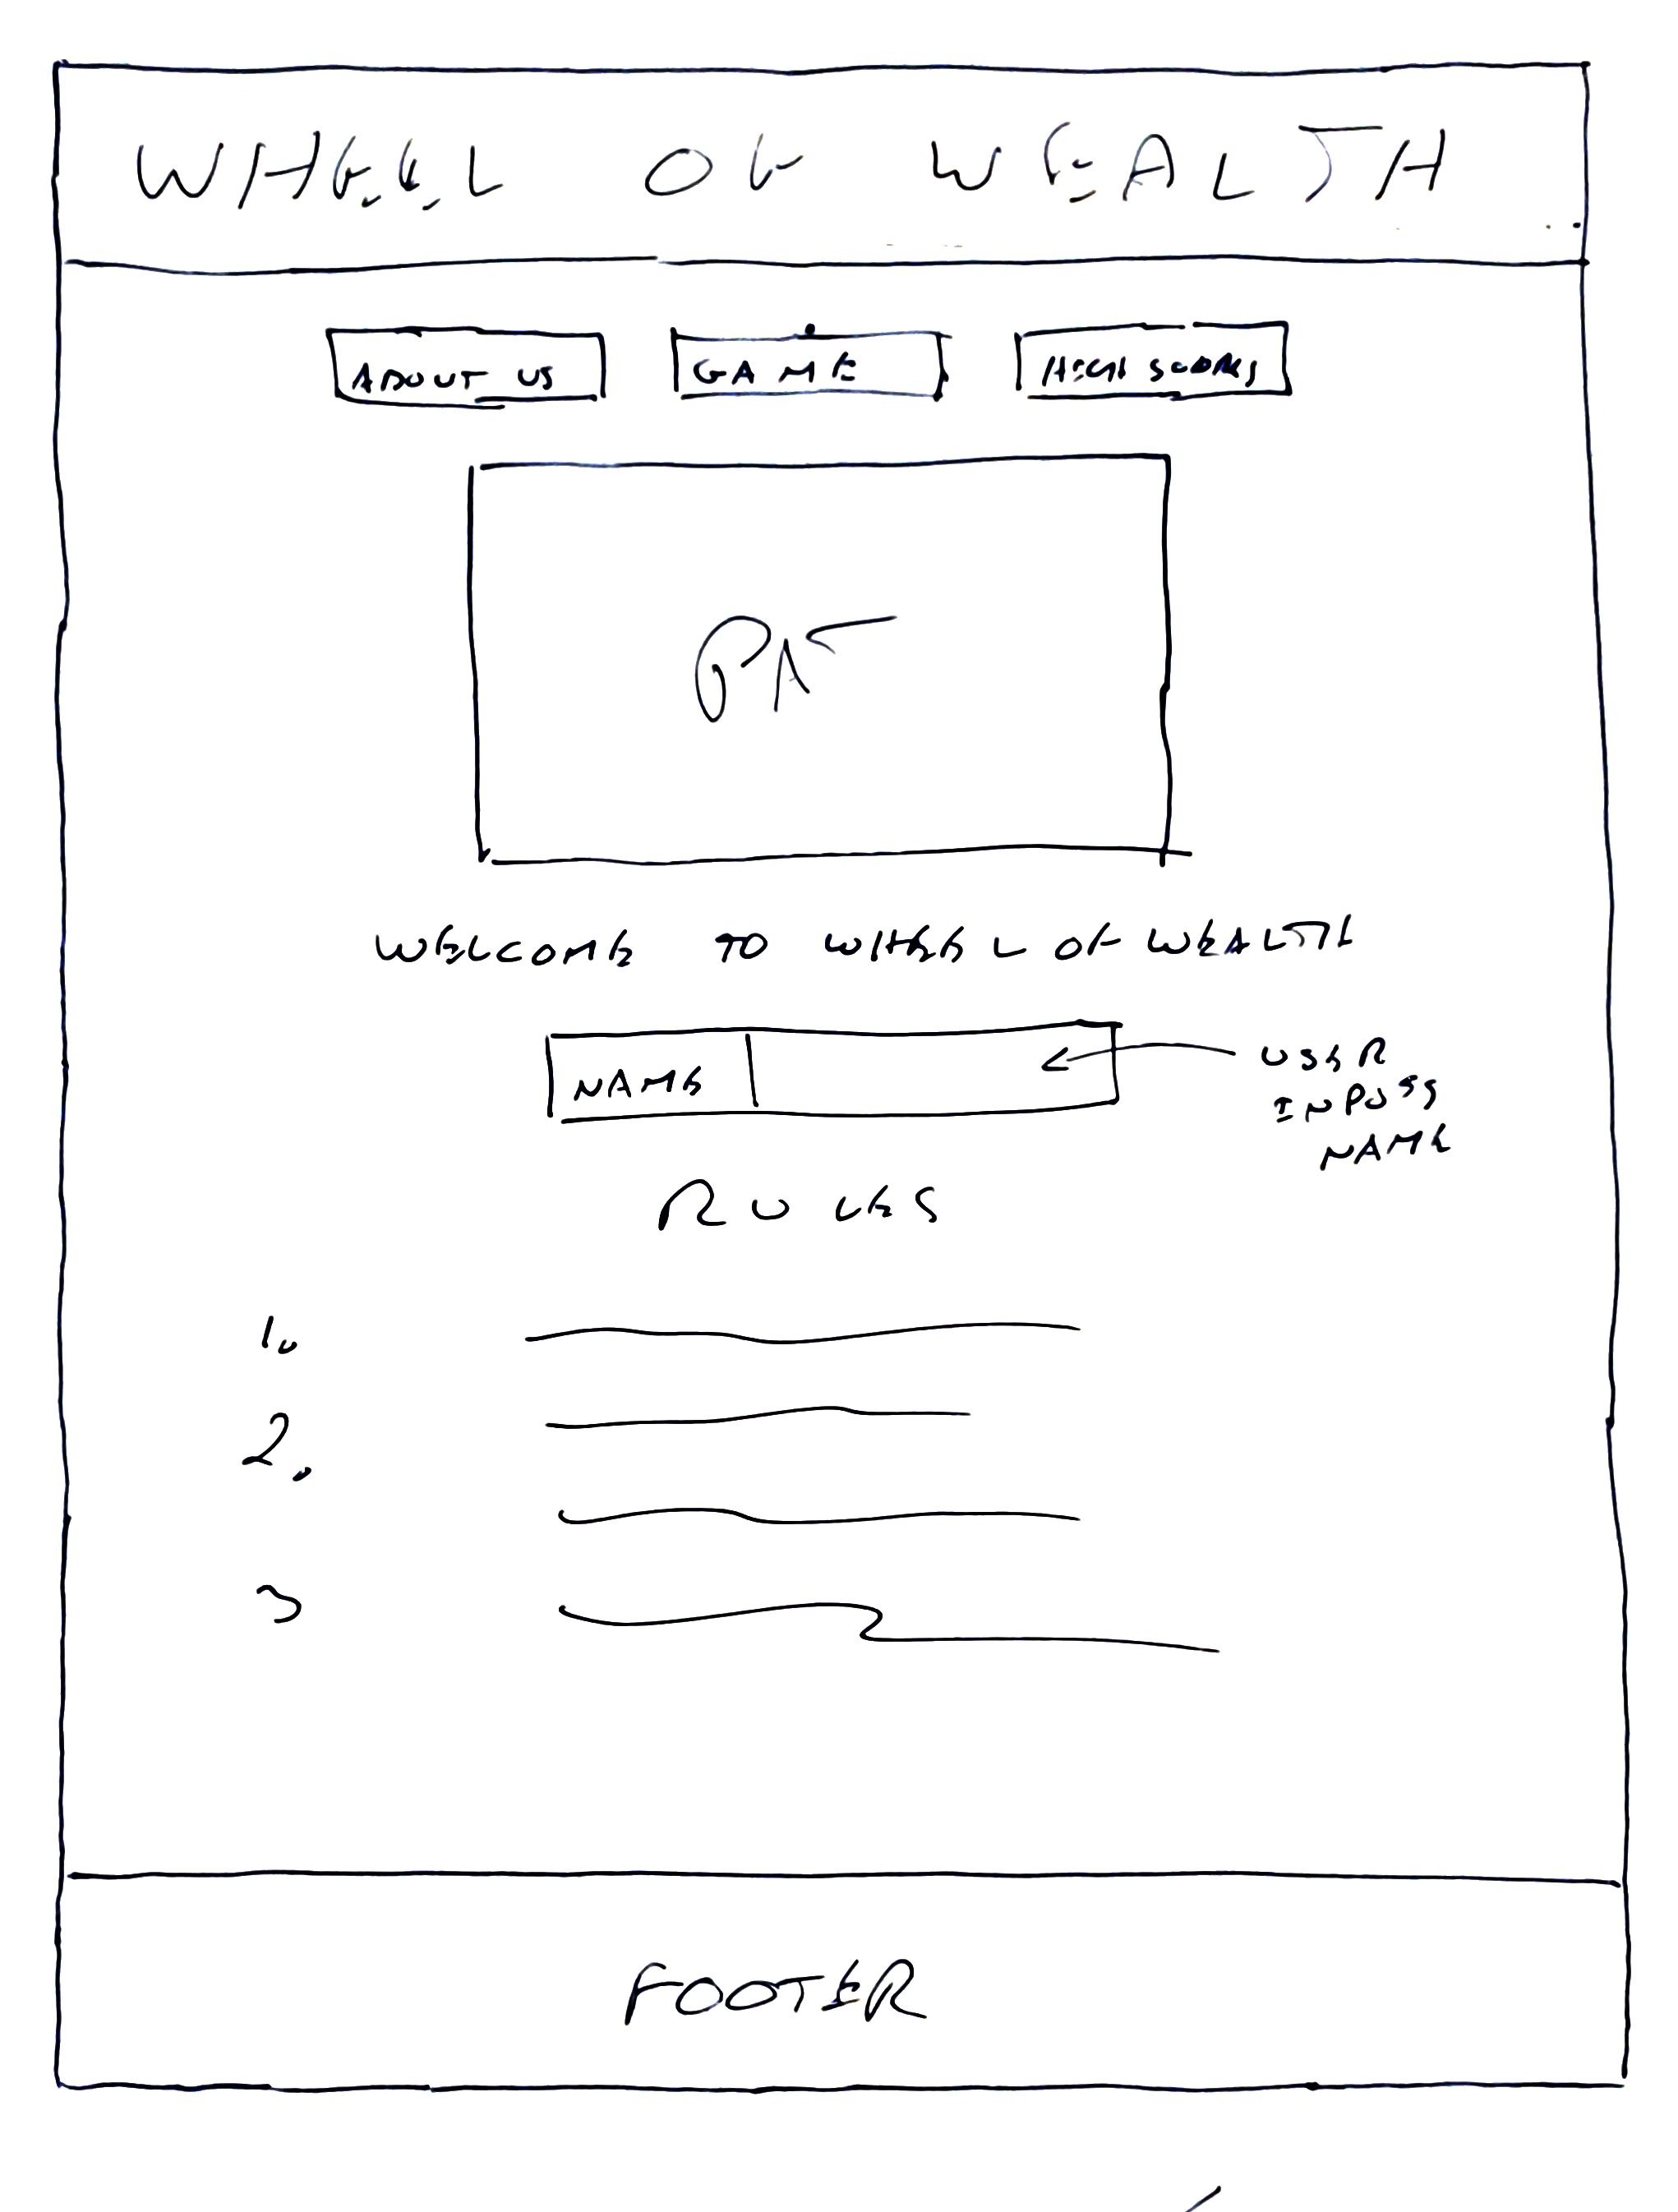 WHEEL OF WEALTH
ABOUT US
GAME
HIGH SCORES
WELCOME TO WHEEL OF WEALTH
NAME
USER
INPUTS
NAME
RULES
1.
2.
3
FOOTER